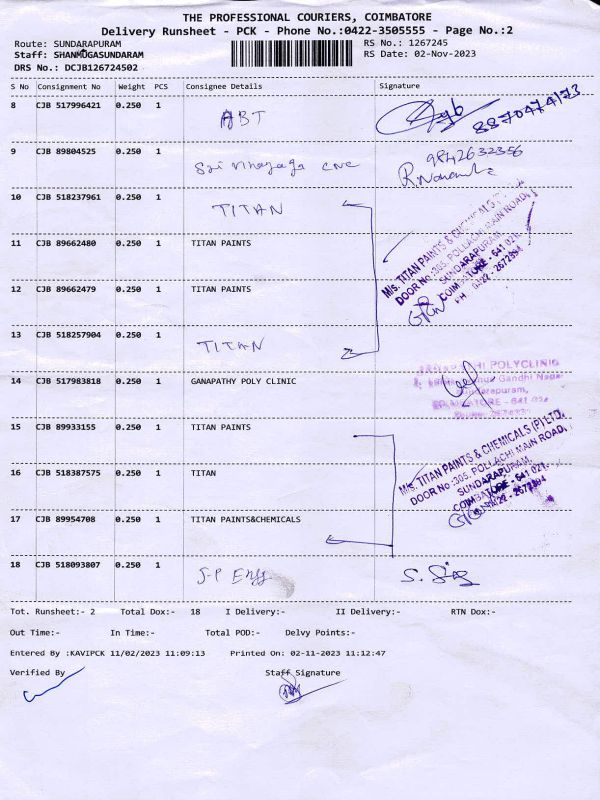 THE PROFESSIONAL COURIERS, COIMBATORE
Delivery Runsheet - PCK - Phone No.:0422-3505555 - Page No.:2
Route: SUNDARAPURAM
RS No.: 1267245
Staff: SHANMUGASUNDARAM
RS Date: 02-Nov-2023
DRS No.: DCJB126724502
S No Consignment No Weight PCS Consignee Details Signature
8 CJB 517996421 0.250 1 ABT
9 CJB 89804525 0.250 1 Sri Vinayaga CNC 9842632356
10 CJB 518237961 0.250 1 TITAN
11 CJB 89662480 0.250 1 TITAN PAINTS
12 CJB 89662479 0.250 1 TITAN PAINTS
M/s. TITAN PAINTS & CHEMICALS (P) LTD.
DOOR No :305, POLLACHI MAIN ROAD,
SUNDARAPURAM,
COIMBATORE - 641 021.
PH 0422-2672994
13 CJB 518257904 0.250 1 TITAN
14 CJB 517983818 0.250 1 GANAPATHY POLY CLINIC
POLYCLINIC
Gandhi Nagar
Sundarapuram,
15 CJB 89933155 0.250 1 TITAN PAINTS
16 CJB 518387575 0.250 1 TITAN
M/s. TITAN PAINTS & CHEMICALS (P) LTD.
DOOR No :305, POLLACHI MAIN ROAD,
SUNDARAPURAM,
COIMBATORE - 641 021.
0422-2672994
17 CJB 89954708 0.250 1 TITAN PAINTS&CHEMICALS
18 CJB 518093807 0.250 1 S-P Engg
Tot. Runsheet:- 2 Total Dox:- 18 I Delivery:- II Delivery:- RTN Dox:-
Out Time:- In Time:- Total POD:- Delvy Points:-
Entered By :KAVIPCK 11/02/2023 11:09:13 Printed On: 02-11-2023 11:12:47
Verified By Staff Signature